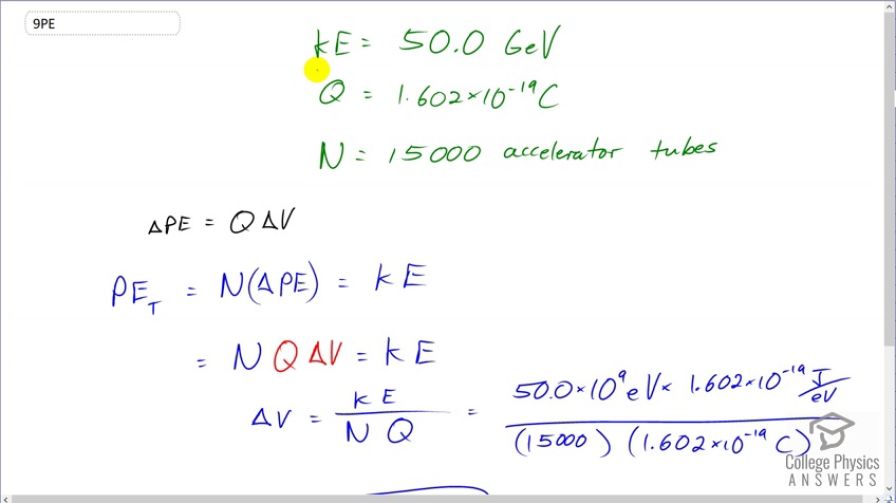 9PE
KE = 50.0 GeV
Q = 1.602×10⁻¹⁹ C
N = 15000 accelerator tubes
ΔPE = QΔV
PE_T = N(ΔPE) = KE
= N Q ΔV = KE
ΔV = KE / (N Q) = (50.0×10⁹ eV × 1.602×10⁻¹⁹ J/eV) / ((15000)(1.602×10⁻¹⁹ C))
College Physics
ANSWERS